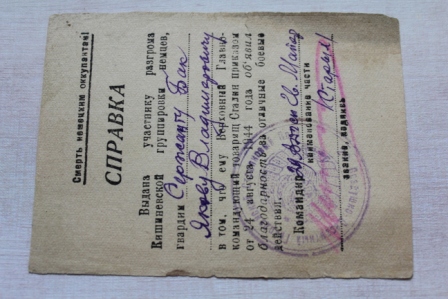 Смерть немецким оккупантам!
СПРАВКА
Выдана участнику разгрома
Кишиневской группировки немцев,
гвардии Сержанту Бак
Якову Владимировичу
в том, что ему Верховный Главно-
командующий товарищ Сталин приказом
от 24 августа 1944 года об'явил
благодарность за отличные боевые
действия.
Командир Гв. Майор
наименование части
(Старых)
звание, подпись